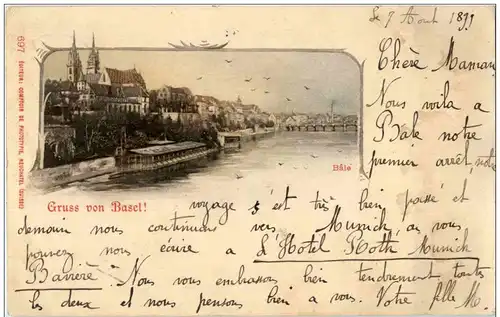 le 7 Aout 1899
697
EDITEUR: COMPTOIR DE PHOTOTYPIE, NEUCHATEL (SUISSE)
Chère Maman
Nous voila a
Bâle notre
premier arrêt, notre
Bâle
Gruss von Basel!
voyage s'est très bien passé et
demain nous continuons vers Munich, ou vous
pouvez nous écrire a l'Hotel Roth Munich
Bavière. Nous vous embrassons bien tendrement toutes
les deux et nous pensons bien a vous. Votre fille M.